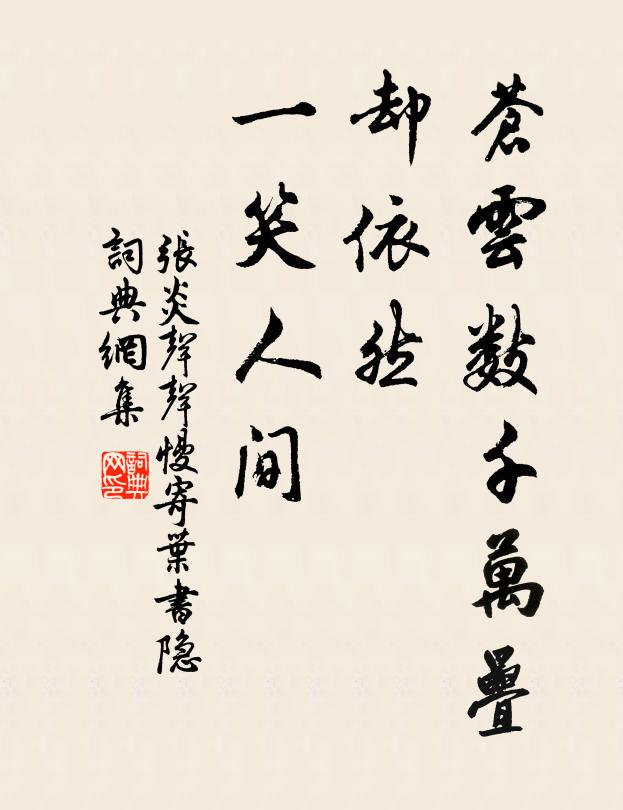 蒼雲數千萬疊
却依然
一笑人间
張炎聲聲慢寄葉書隐
詞典網集
詞典网印